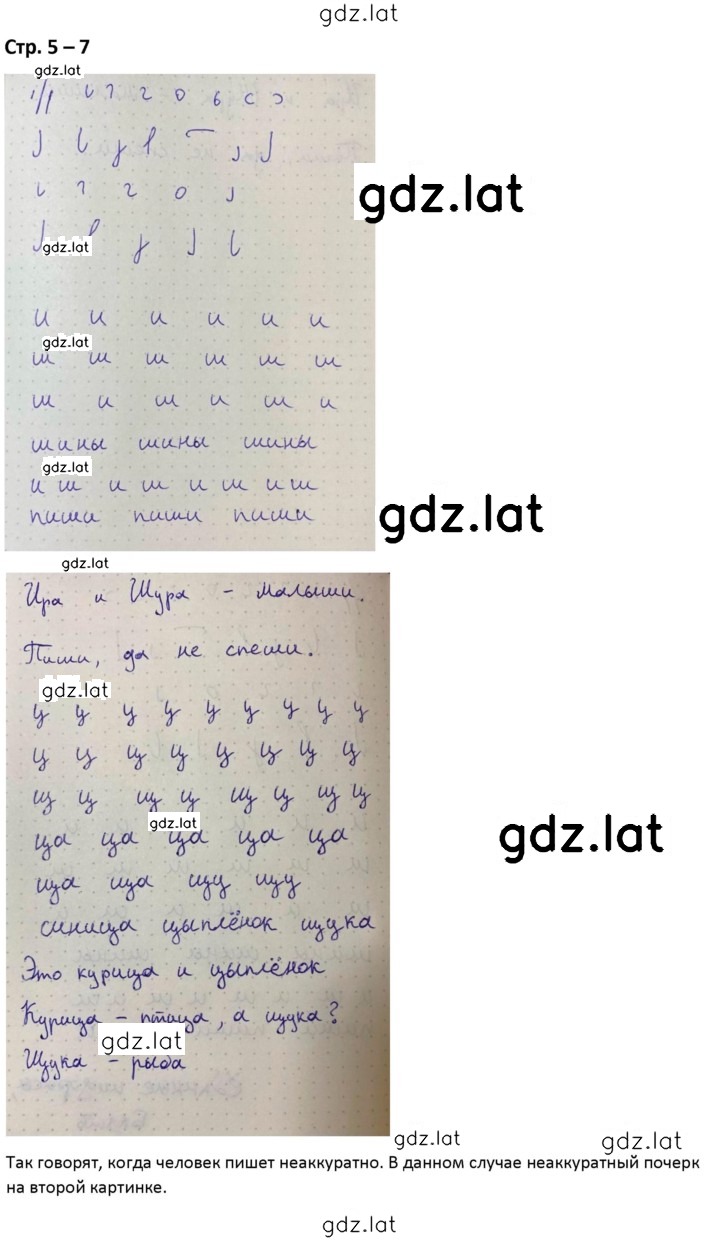 gdz.lat
Стр. 5 – 7
gdz.lat
г о ь с э
gdz.lat
г о
gdz.lat
и и и и и и
gdz.lat
ш ш ш ш ш ш
ш и ш и ш и
шины шины шины
gdz.lat
и ш и ш и ш и ш
пиши пиши пиши
gdz.lat
gdz.lat
Ира и Шура - малыши.
Пиши, да не спеши.
gdz.lat
у у у у у у у у у
ц ц щ ц ц ц ц ц
щ ц щ ц щ ц щ ц
gdz.lat
gdz.lat
ца ца ца ца ца
ща ща щу щу
синица цыплёнок щука
Это курица и цыплёнок
Курица - птица, а щука?
gdz.lat
Щука - рыба
gdz.lat
gdz.lat
Так говорят, когда человек пишет неаккуратно. В данном случае неаккуратный почерк
на второй картинке.
gdz.lat